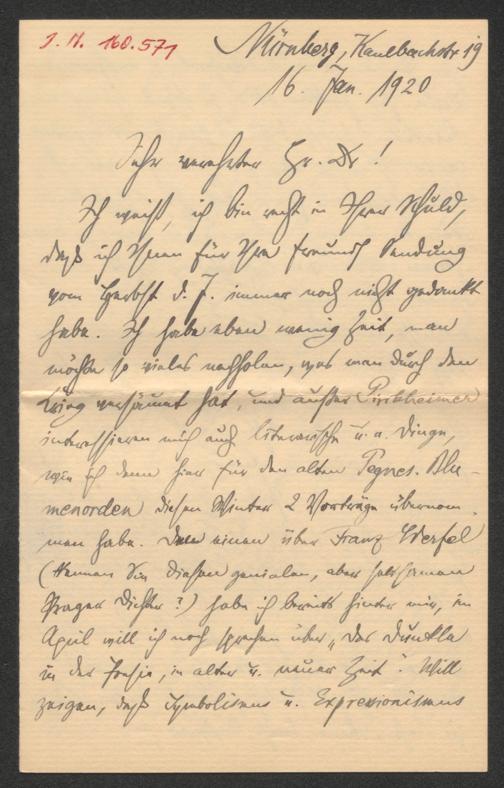 J. N. 160.571
Nürnberg, Kaulbachstr 19
16. Jan. 1920
Sehr verehrter Hr. Dr!
Ich weiß, ich bin recht in Ihrer Schuld,
daß ich Ihnen für Ihre freundl Sendung
vom Herbst d. J. immer noch nicht gedankt
habe. Ich habe eben wenig Zeit, man
möchte so vieles nachholen, was man durch den
Krieg versäumt hat, und außer Pirkheimer
interessieren mich auch literarische u. a. Dinge,
wie ich denn hier für den alten Pegnes. Blu-
menorden diesen Winter 2 Vorträge übernom-
men habe. Den einen über Franz Werfel
(Kennen Sie diesen genialen, aber seltsamen
Prager Dichter?) habe ich bereits hinter mir, im
April will ich noch sprechen über „Das Dunkle
in der Poesie, in alter u. neuer Zeit". Will
zeigen, daß Symbolismus u. Expressionismus